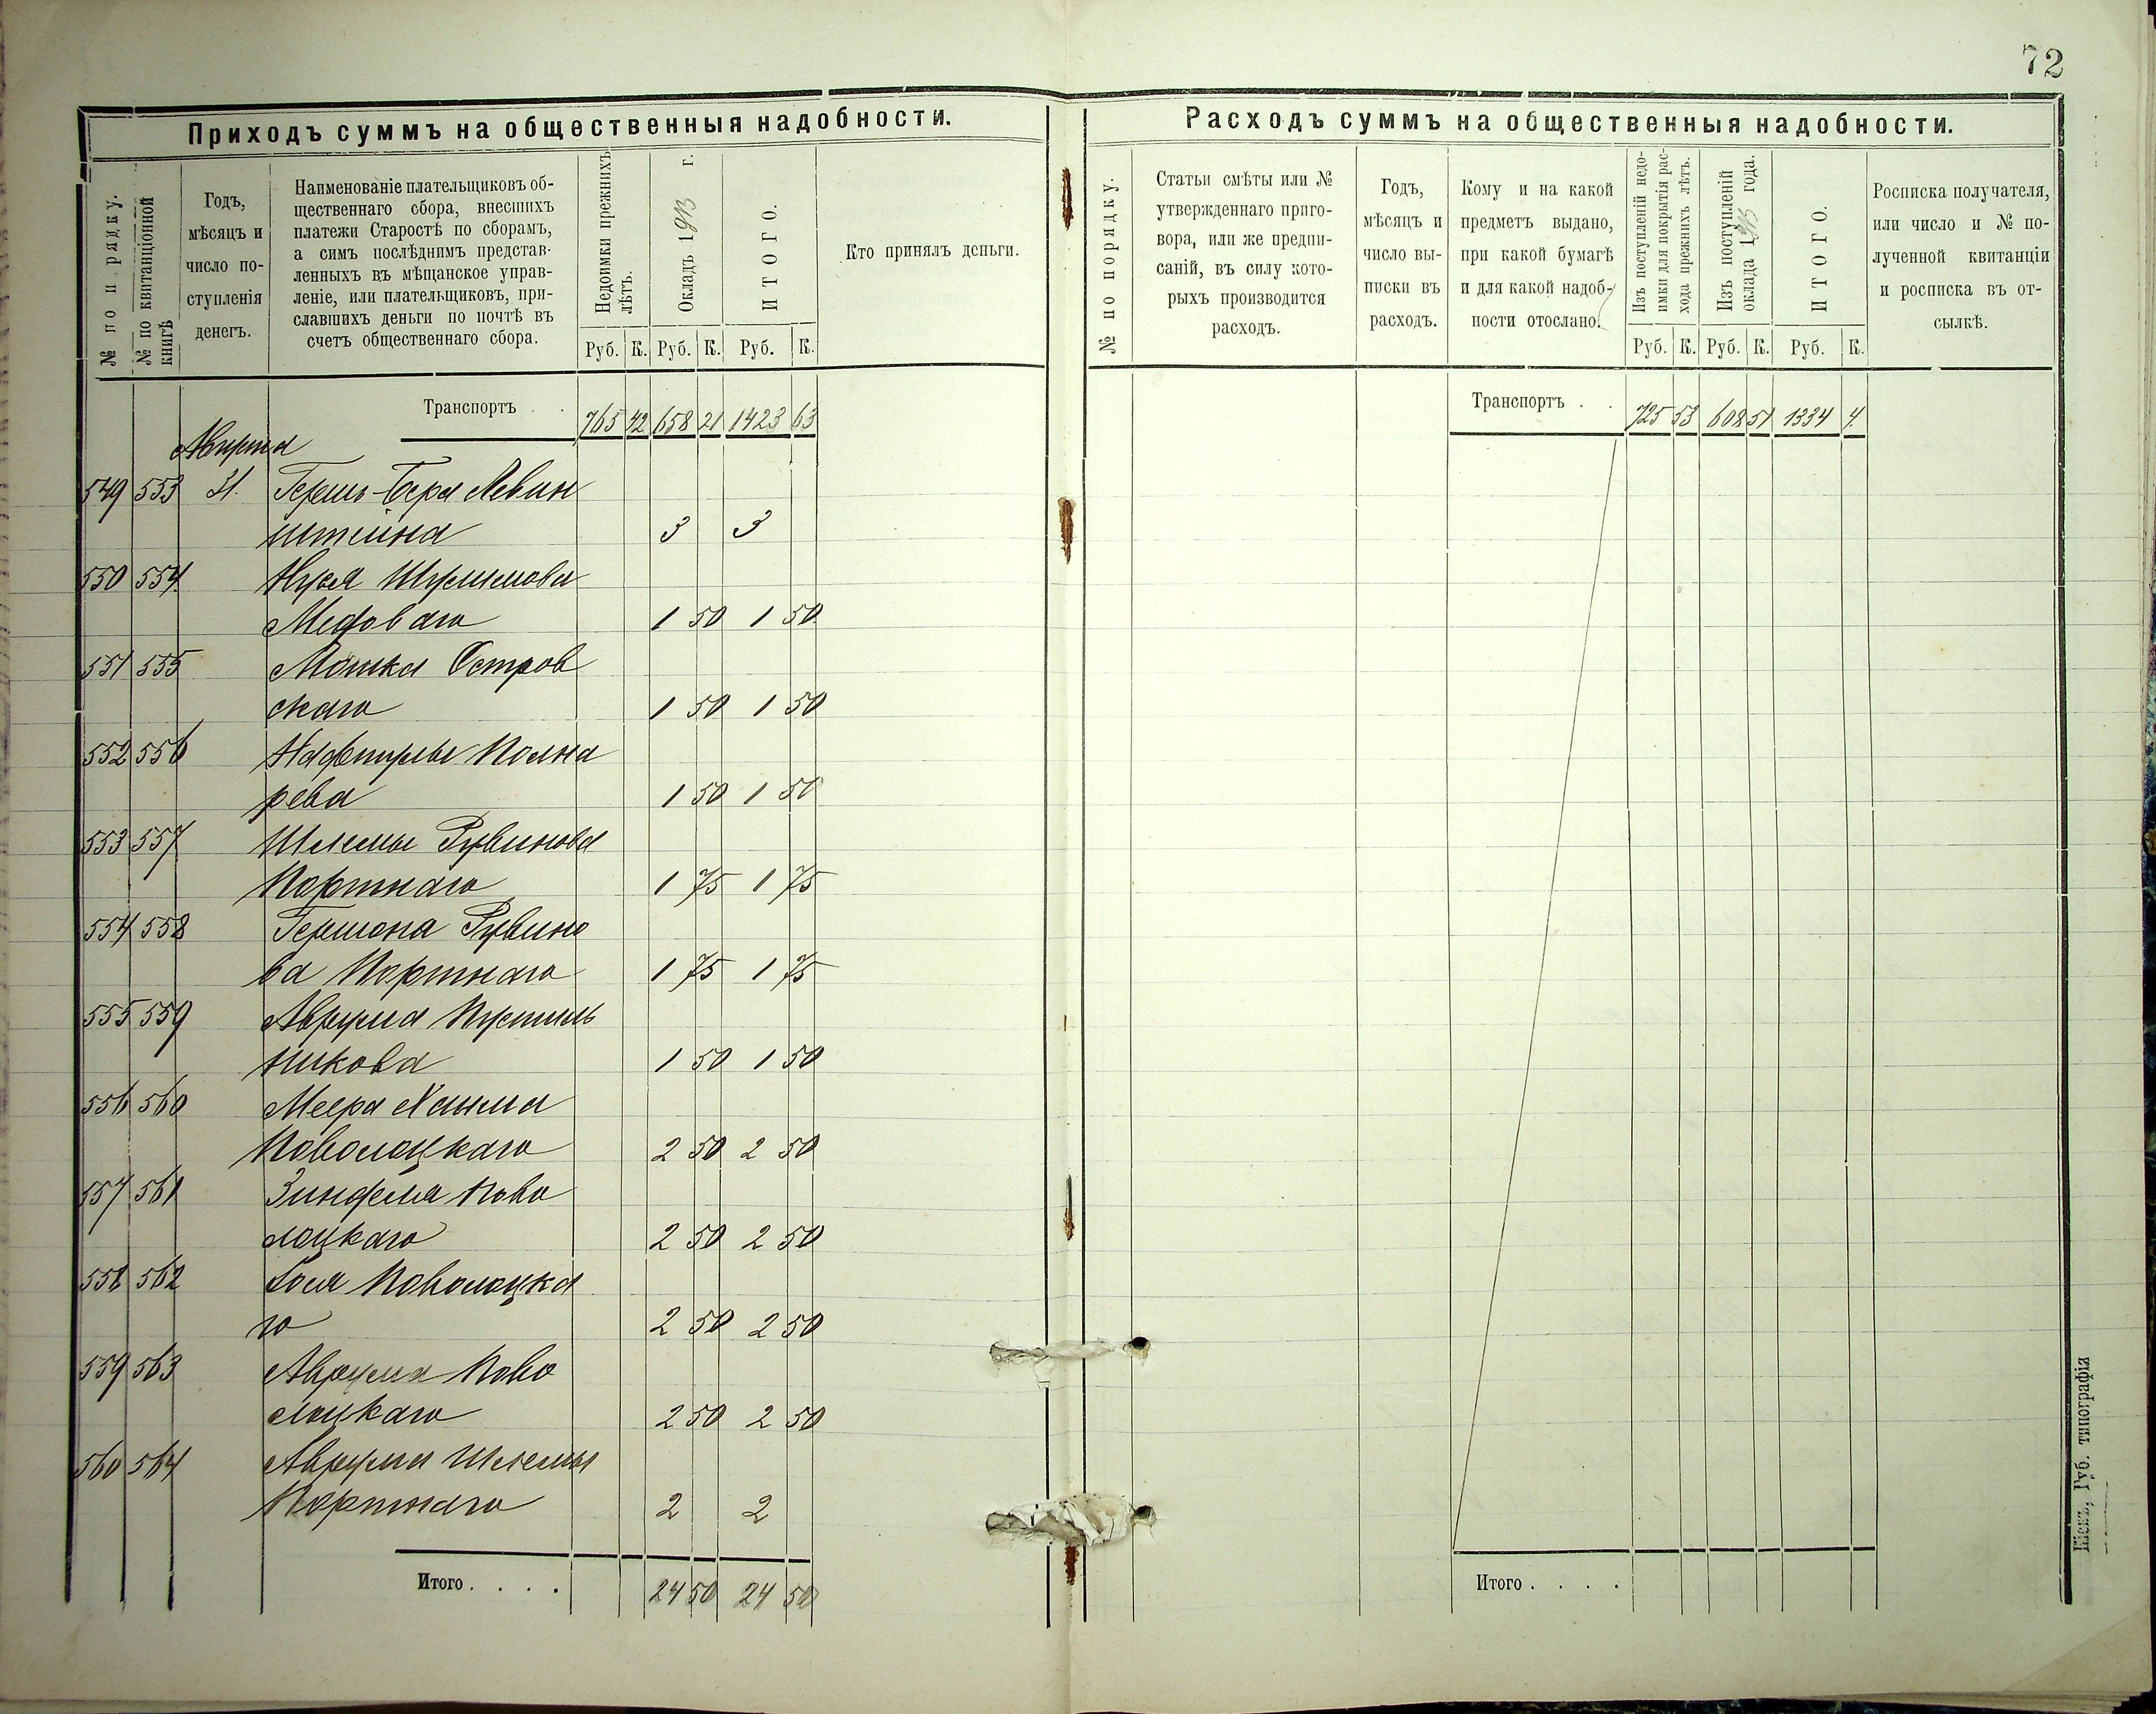 72
Приходъ суммъ на общественныя надобности.
№ по порядку.
№ по квитанціонной книгѣ
Годъ,
мѣсяцъ и
число по-
ступленія
денегъ.
Наименованіе плательщиковъ об-
щественнаго сбора, внесшихъ
платежи Старостѣ по сборамъ,
а симъ послѣднимъ представ-
ленныхъ въ мѣщанское управ-
леніе, или плательщиковъ, при-
славшихъ деньги по почтѣ въ
счетъ общественнаго сбора.
Недоимки прежнихъ
лѣтъ.
Окладъ 1913 г.
ИТОГО.
Руб. К. Руб. К. Руб. К.
Кто принялъ деньги.
Транспортъ . . 765 42 658 21 1423 63
Августа
549 553 31. Гершъ-Бера Левин
штейна 3 3
550 554. Нусея Шулимова
Медоваго 1 50 1 50
551 555 Мошка Остров
скаго 1 50 1 50
552 556 Нафтулы Полна
рева 1 50 1 50
553 557 Шлемы Рувинова
Портнаго 1 75 1 75
554 558 Гершона Рувино
ва Портнаго 1 75 1 75
555 559 Аврума Пустиль
никова 1 50 1 50
556 560 Меера Хаима
Поволоцкаго 2 50 2 50
557 561 Зинделя Пово
лоцкаго 2 50 2 50
558 562 Поволоцка
го 2 50 2 50
559 563 Аврума Пово
лоцкаго 2 50 2 50
560 564 Аврума Шлемы
Портнаго 2 2
Итого . . . . 24 50 24 50
Расходъ суммъ на общественныя надобности.
№ по порядку.
Статьи смѣты или №
утвержденнаго приго-
вора, или же предпи-
саній, въ силу кото-
рыхъ производится
расходъ.
Годъ,
мѣсяцъ и
число вы-
писки въ
расходъ.
Кому и на какой
предметъ выдано,
при какой бумагѣ
и для какой надоб-
ности отослано.
Изъ поступленій недо-
имки для покрытія рас-
хода прежнихъ лѣтъ.
Изъ поступленій
оклада 1913 года.
ИТОГО.
Руб. К. Руб. К. Руб. К.
Росписка получателя,
или число и № по-
лученной квитанціи
и росписка въ от-
сылкѣ.
Транспортъ . . 725 53 608 51 1334 4.
Итого . . . .
Губ. типографія